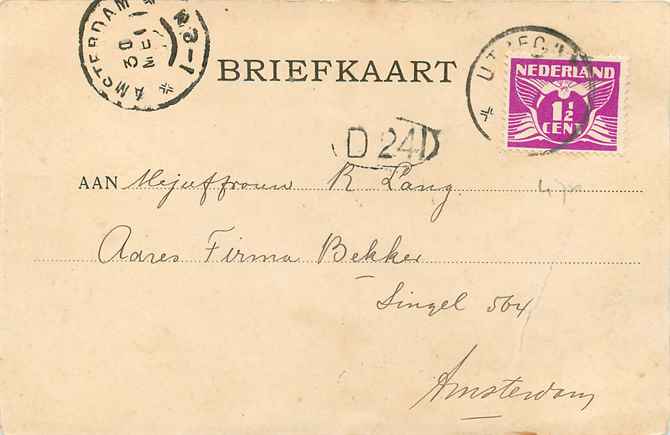 AMSTERDAM
30
MEI
1-2
BRIEFKAART
UTRECHT
NEDERLAND
1½
CENT
D 241
AAN Mejuffrouw R Lang
Adres Firma Bekker
Singel 564
Amsterdam